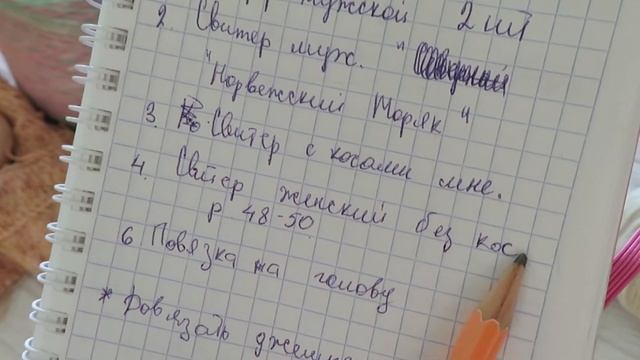 мужской 2 шт
2. Свитер муж. "
"Норвежский Моряк"
3. Свитер с косами мне.
4. Свитер женский без кос
р 48-50
6 Повязка на голову
* Довязать